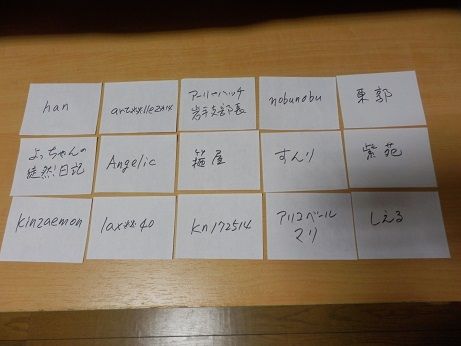 han
art**llez*14
アーリーハッチ
岩手支部長
nobunobu
東郭
よっちゃんの
徒然!日記
Angelic
籠屋
すんり
紫苑
kinzaemon
lax**40
kn172514
アリコベール
マリ
しえる